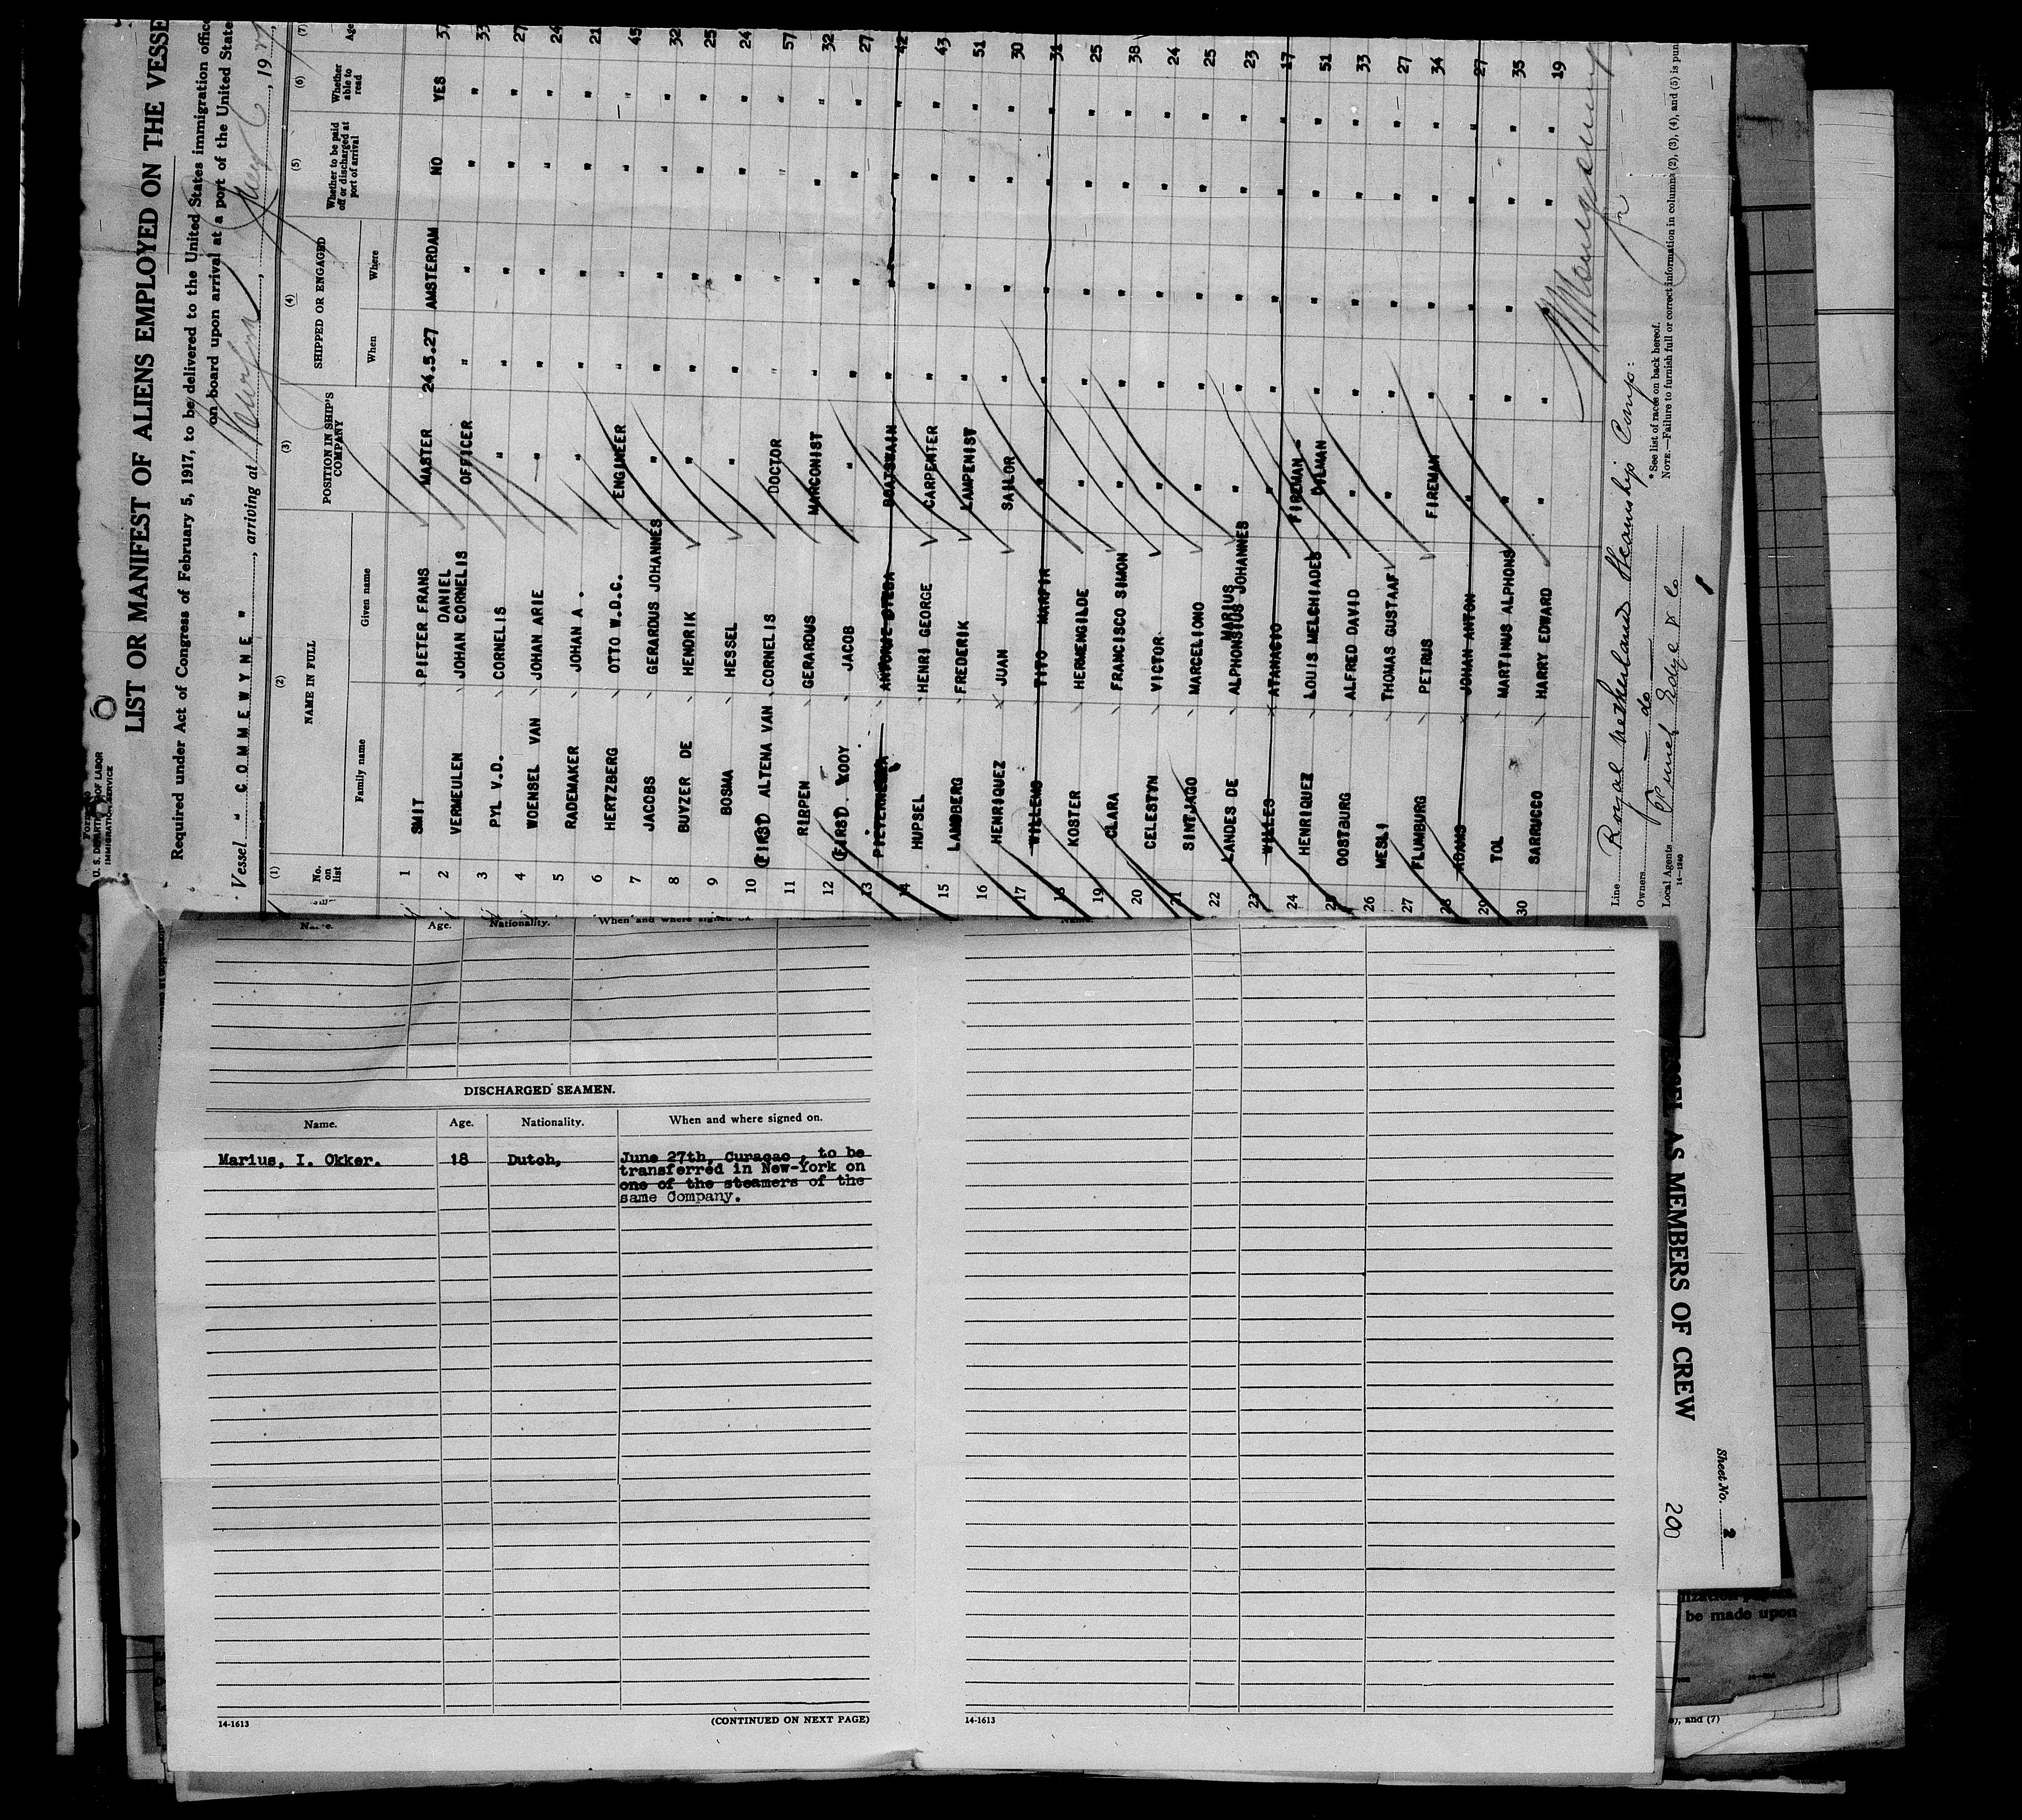 U. S. DEPARTMENT OF LABOR
IMMIGRATION SERVICE
LIST OR MANIFEST OF ALIENS EMPLOYED ON THE VESSE
Required under Act of Congress of February 5, 1917, to be delivered to the United States immigration offic
on board upon arrival at a port of the United State
Vessel " COMMEWYNE ", arriving at , 19
(1) (2) (3) (4) (5) (6) (7)
No. on list NAME IN FULL POSITION IN SHIP'S COMPANY SHIPPED OR ENGAGED Whether to be paid off or discharged at port of arrival Whether able to read Age
Family name Given name When Where
1 SMIT PIETER FRANS MASTER 24.5.27 AMSTERDAM NO YES 37
2 VERMEULEN DANIEL JOHAN CORNELIS OFFICER " " " " 33
3 PYL V.D. CORNELIS " " " " " 27
4 WOENSEL VAN JOHAN ARIE " " " " " 24
5 RADEMAKER JOHAN A. " " " " " 21
6 HERTZBERG OTTO W.D.C. ENGINEER " " " " 45
7 JACOBS GERARDUS JOHANNES " " " " " 32
8 BUYZER DE HENDRIK " " " " " 25
9 BOSMA HESSEL " " " " " 24
10 (FIRST) ALTENA VAN CORNELIS DOCTOR " " " " 57
11 RIRPEN GERARDUS MARCONIST " " " " 32
12 (FIRST) KOOY JACOB " " " " " 27
13 BOATSWAIN " " " " 42
14 HUPSEL HENRI GEORGE CARPENTER " " " " 43
15 LANDBERG FREDERIK LAMPENIST " " " " 51
16 HENRIQUEZ JUAN SAILOR " " " " 30
17 WILLEMS TITO MARFIR " " " " " 31
18 KOSTER HERMENGILDE " " " " " 25
19 CLARA FRANCISCO SIMON " " " " " 38
20 CELESTYN VICTOR " " " " " 24
21 SINTJAGO MARCELIONO " " " " " 25
22 LANDES DE MARIUS ALPHONSIUS JOHANNES " " " " " 23
23 WILLES ATANACIO " " " " " 17
24 HENRIQUEZ LOUIS MELCHIADES FIREMAN - OILMAN " " " " 51
25 OOSTBURG ALFRED DAVID " " " " " 33
26 MESLI THOMAS GUSTAAF " " " " " 27
27 FLUMBURG PETRUS FIREMAN " " " " 34
28 ADAMS JOHAN ANTON " " " " " 27
29 TOL MARTINUS ALPHONS " " " " " 35
30 SARUCCO HARRY EDWARD " " " " " 19
Line Royal Netherland Steamship Comp:
Owners do
Local Agents
14-1240
* See list of races on back hereof.
NOTE.—Failure to furnish full or correct information in columns (2), (3), (4), and (5) is pun
Name. Age. Nationality. When and where signed on.
DISCHARGED SEAMEN.
Name. Age. Nationality. When and where signed on.
Marius, I. Okker. 18 Dutch, June 27th, Curaçao, to be
transferred in New-York on
one of the steamers of the
same Company.
14-1613 (CONTINUED ON NEXT PAGE)
14-1613
SSEL AS MEMBERS OF CREW
Sheet No. 2
200
be made upon
and (7)